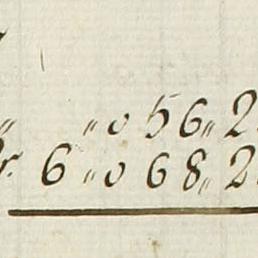 " " 0 56 " 2
r. 6 " 0 68 " 2